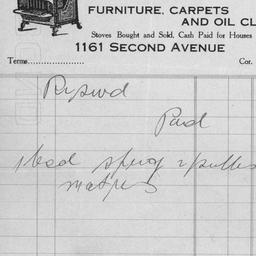 FURNITURE, CARPETS
AND OIL CL
Stoves Bought and Sold, Cash Paid for Houses
1161 SECOND AVENUE
Terms
Cor.
Paid
1 bed spring